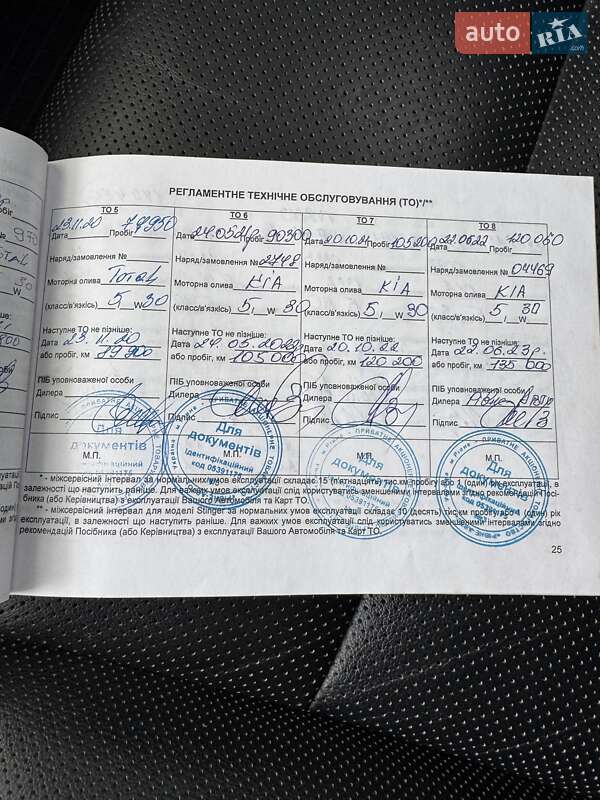 auto RIA .com
РЕГЛАМЕНТНЕ ТЕХНІЧНЕ ОБСЛУГОВУВАННЯ (ТО)*/**
ТО 5
23.11.20
Дата Пробіг
Наряд/замовлення №
Моторна олива Total
(класс/в'язкісь) 5, w 30
Наступне ТО не пізніше:
Дата 23.11.20
або пробіг, км
ПІБ уповноваженої особи
Дилера
Підпис
М.П.
ТО 6
Дата Пробіг 90300
Наряд/замовлення № 2748
Моторна олива КІА
(класс/в'язкісь) 5, w 30
Наступне ТО не пізніше:
Дата 24.05.
або пробіг, км 105 000
ПІБ уповноваженої особи
Дилера
Підпис
М.П.
ТО 7
Дата 20.10.21 Пробіг
Наряд/замовлення №
Моторна олива КІА
(класс/в'язкісь) 5, w 30
Наступне ТО не пізніше:
Дата 20.10.22
або пробіг, км 120 200
ПІБ уповноваженої особи
Дилера
Підпис
М.П.
ТО 8
Дата 22.06.22 Пробіг
Наряд/замовлення № 04469
Моторна олива КІА
(класс/в'язкісь) 5, w 30
Наступне ТО не пізніше:
Дата 22.06.23р.
або пробіг, км 135 000
ПІБ уповноваженої особи
Дилера
Підпис
М.П.
Для документів
Ідентифікаційний
код 05391174
* - міжсервісний інтервал за нормальних умов експлуатації складає 15 (п'ятнадцять) тис.км пробігу або 1 (один) рік експлуатації, в
залежності що наступить раніше. Для важких умов експлуатації слід користуватись зменшеними інтервалами згідно рекомендацій Посі-
бника (або Керівництва) з експлуатації Вашого Автомобіля та Карт ТО.
** - міжсервісний інтервал для моделі Stinger за нормальних умов експлуатації складає 10 (десять) тис.км пробігу або 1 (один) рік
експлуатації, в залежності що наступить раніше. Для важких умов експлуатації слід користуватись зменшеними інтервалами згідно
рекомендацій Посібника (або Керівництва) з експлуатації Вашого Автомобіля та Карт ТО.
25